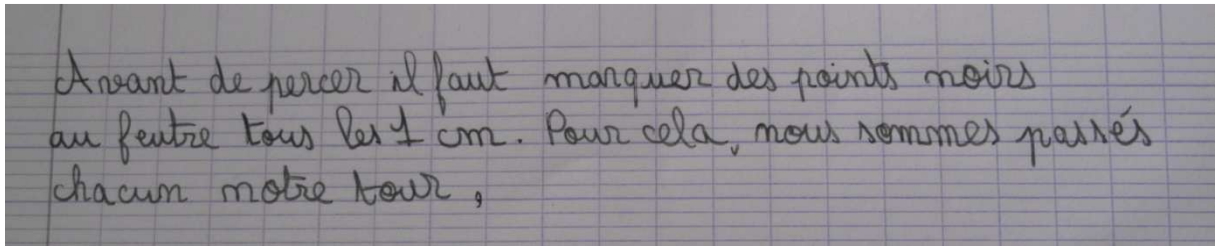 Avant de percer il faut marquer des points noirs
au feutre tous les 1 cm. Pour cela, nous sommes passés
chacun notre tour,